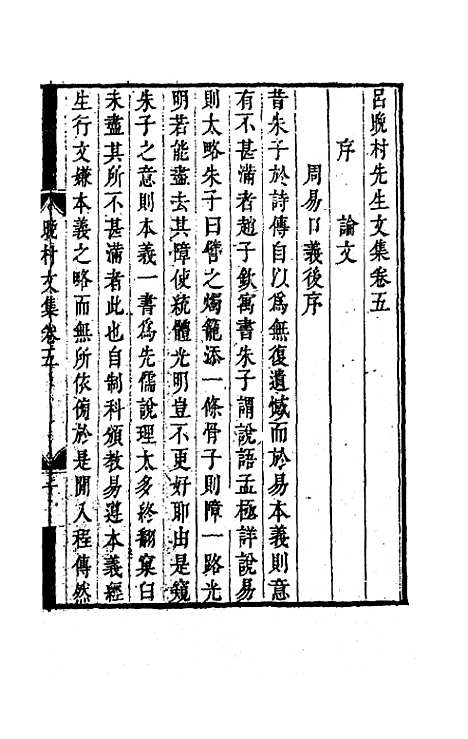 呂晚村先生文集卷五
序　論文
周易口義後序
昔朱子於詩傳自以爲無復遺憾而於易本義則意
有不甚滿者趙子欽寓書朱子謂說語孟極詳說易
則太略朱子曰譬之燭籠添一條骨子則障一路光
明若能盡去其障使統體光明豈不更好耶由是窺
朱子之意則本義一書爲先儒說理太多終翻窠臼
未盡其所不甚滿者此也自制科頒教易遵本義經
生行文嫌本義之略而無所依傍於是闌入程傳然
晚村文集卷五
一